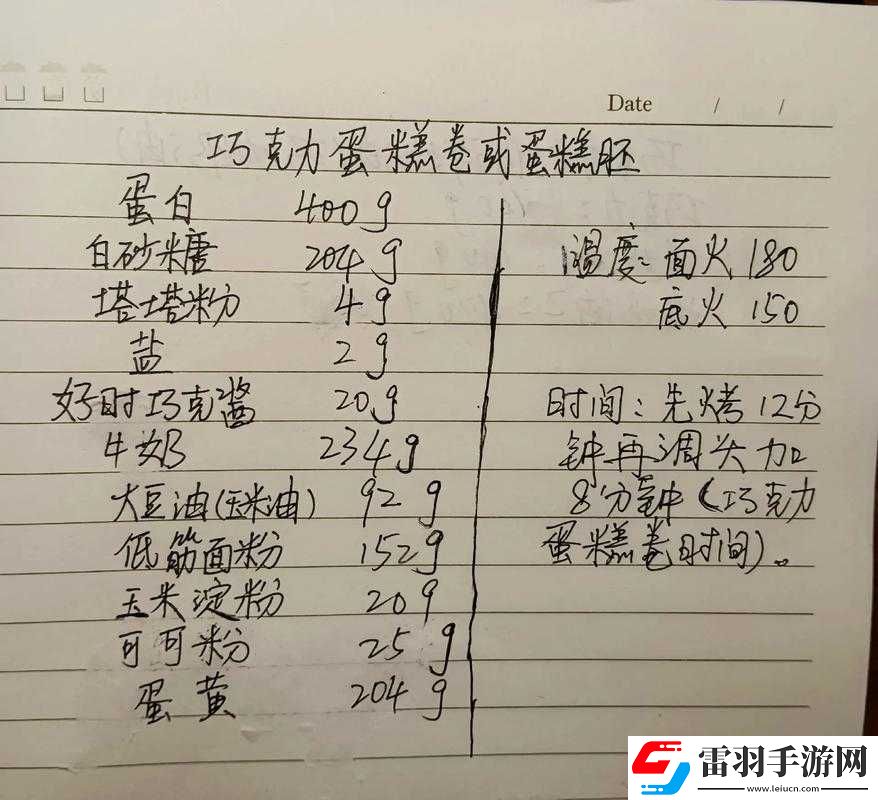 Date / /
巧克力蛋糕卷或蛋糕胚
蛋白 400g
白砂糖 204g
塔塔粉 4g
盐 2g
好时巧克酱 20g
牛奶 234g
大豆油(玉米油) 92g
低筋面粉 152g
玉米淀粉 20g
可可粉 25g
蛋黄 204g
温度：面火 180
底火 150
时间：先烤12分
钟再调头加
8分钟（巧克力
蛋糕卷时间）。
雷羽手游网
www.leiucn.com